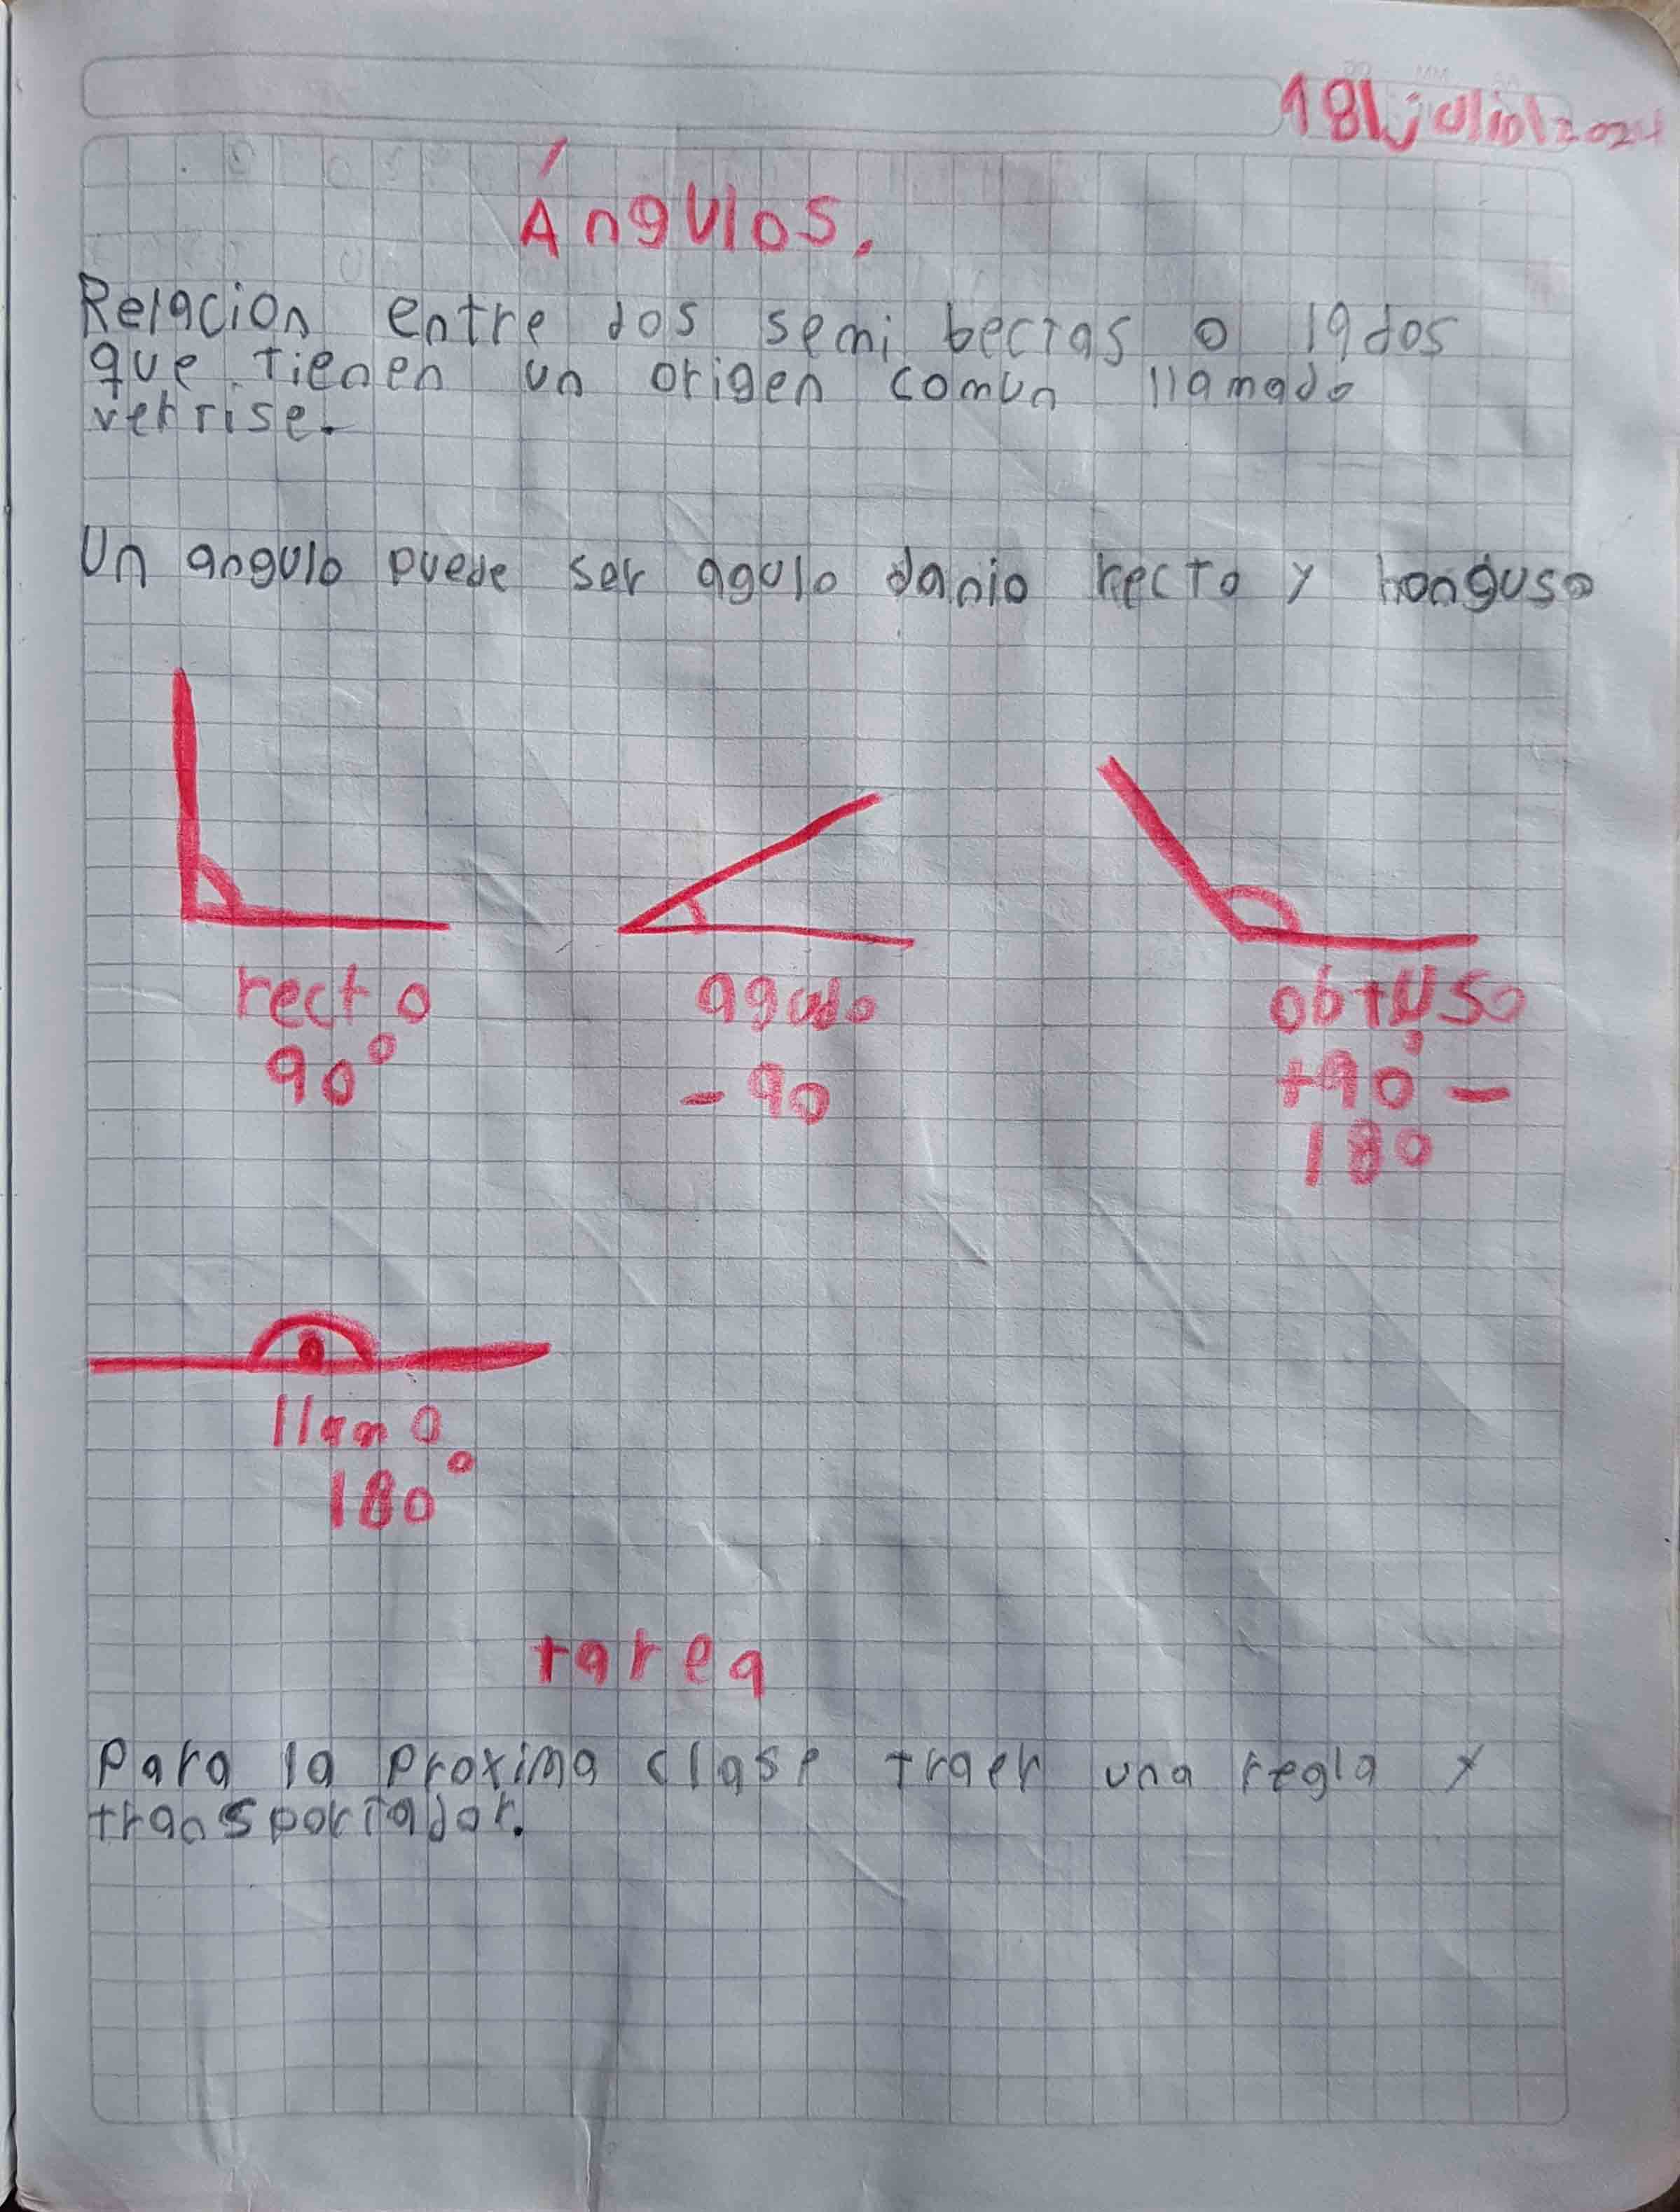 18|julio|2024
Ángulos.
Relacion entre dos semi bectas o lados
que tienen un origen comun llamado
vertrise.
Un angulo puede ser agulo danio recto y honguso
recto
90°
agudo
- 90
obtuso
+90 -
180
llano
180°
tarea
Para la proxima clase traer una regla y
transportador.